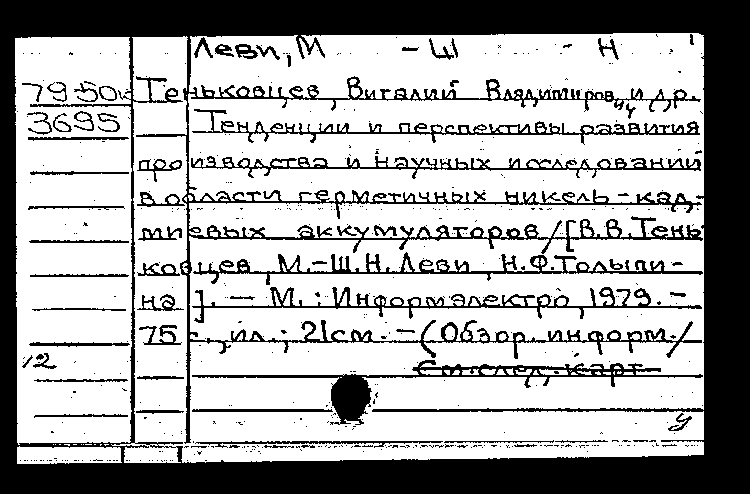 Леви, М - Ш - Н
79 50к Теньковцев, Виталий Владимирович и др.
3695 Тенденции и перспективы развития
производства и научных исследований
в области герметичных никель-кад-
миевых аккумуляторов / [В.В. Тень
ковцев, М.-Ш.Н. Леви, Н.Ф. Толыпи-
на]. — М. : Информэлектро, 1979. -
75 с., ил.; 21см. - (Обзор. информ. /
12
См. след. карт
у